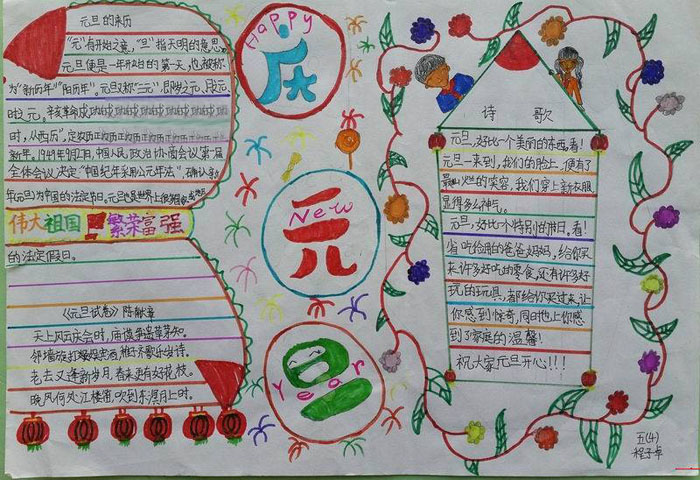 元旦的来历
"元"有开始之意，"旦"指天明的意思。
元旦便是一年开始的第一天，也被称
为"新历年""阳历年"。元旦又称"三元"，即岁之元、月之元、
时之元，辛亥革命成功
时，从西历"，定农历正
新年。1949年9月27日，中国人民政治协商会议第一届
全体会议决定"中国纪年采用公元年法"，确认
年元旦为中国的法定节日。元旦也是世界上很多国家或地区
伟大祖国 繁荣富强
的法定假日。
《元旦试卷》陈献章
天上风云庆会时，庙谟争遗草茅知。
邻墙旋打娱宾酒，稚子齐歌乐岁诗。
老去又逢新岁月，春来更有好花枝。
晚风何处江楼笛，吹到东溟月上时。
Happy
庆
New
元
Year
旦
诗 歌
元旦，好比一个美丽的东西，看！
元旦一来到，我们的脸上，便有了
最灿烂的笑容，我们穿上新衣服，
显得多么神气。
元旦，好比一个特别的节日。看！
省吃俭用的爸爸妈妈，给你买
来许多好吃的零食，还有许多好
玩的玩具，都给你买过来，让
你感到惊奇，同时也让你感
到了家庭的温馨！
祝大家元旦开心！！！
五(4)
程子卓